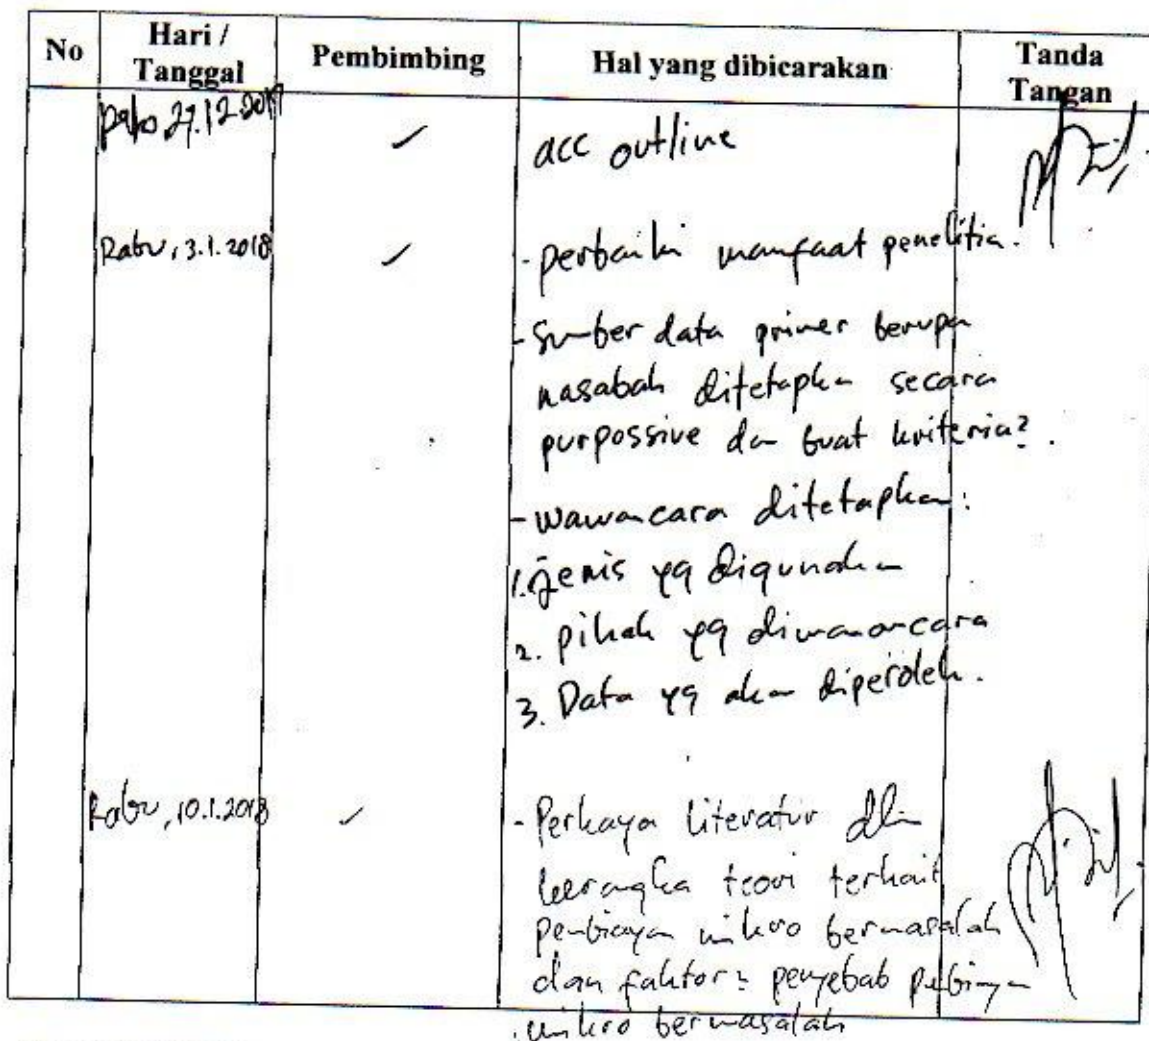 No Hari / Tanggal Pembimbing Hal yang dibicarakan Tanda Tangan
Rabo 27.12.2017 ✓ acc outline
Rabu, 3.1.2018 ✓ - perbaiki manfaat penelitia.
- Sumber data primer berupa
nasabah ditetapka secara
purpossive da buat kriteria2.
- wawancara ditetapkan:
1. Jenis yg digunaka
2. pihak yg diwawancara
3. Data yg aka diperoleh.
Rabu, 10.1.2018 ✓ - Perkaya literatur dlm
kerangka teori terkait
pembiayaan mikro bermasalah
dan faktor2 penyebab pembiayaan
mikro bermasalah